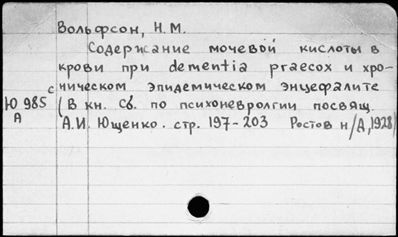 Вольфсон, Н.М.
Содержание мочевой кислоты в
крови при dementia praecox и хро-
с ническом эпидемическом энцефалите
Ю 985 (В кн. Сб. по психоневрологии посвящ.
А А.И. Ющенко. стр. 197-203 Ростов н/Д, 1928)